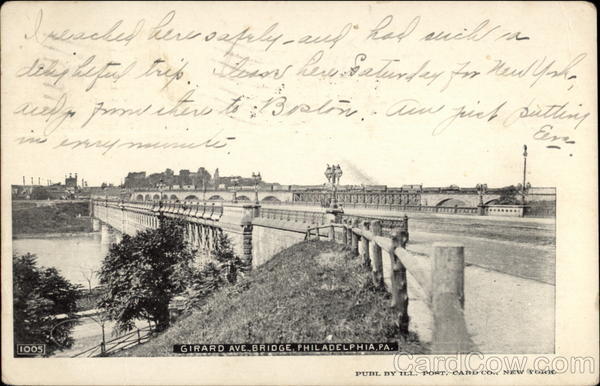 I reached here safely - and had such a
delightful trip. Leave here Saturday for New York,
and from there to Boston. Am just putting
in every minute.
Em
1005
GIRARD AVE. BRIDGE, PHILADELPHIA, PA.
PUBL BY ILL. POST. CARD CO., NEW YORK.
CardCow.com